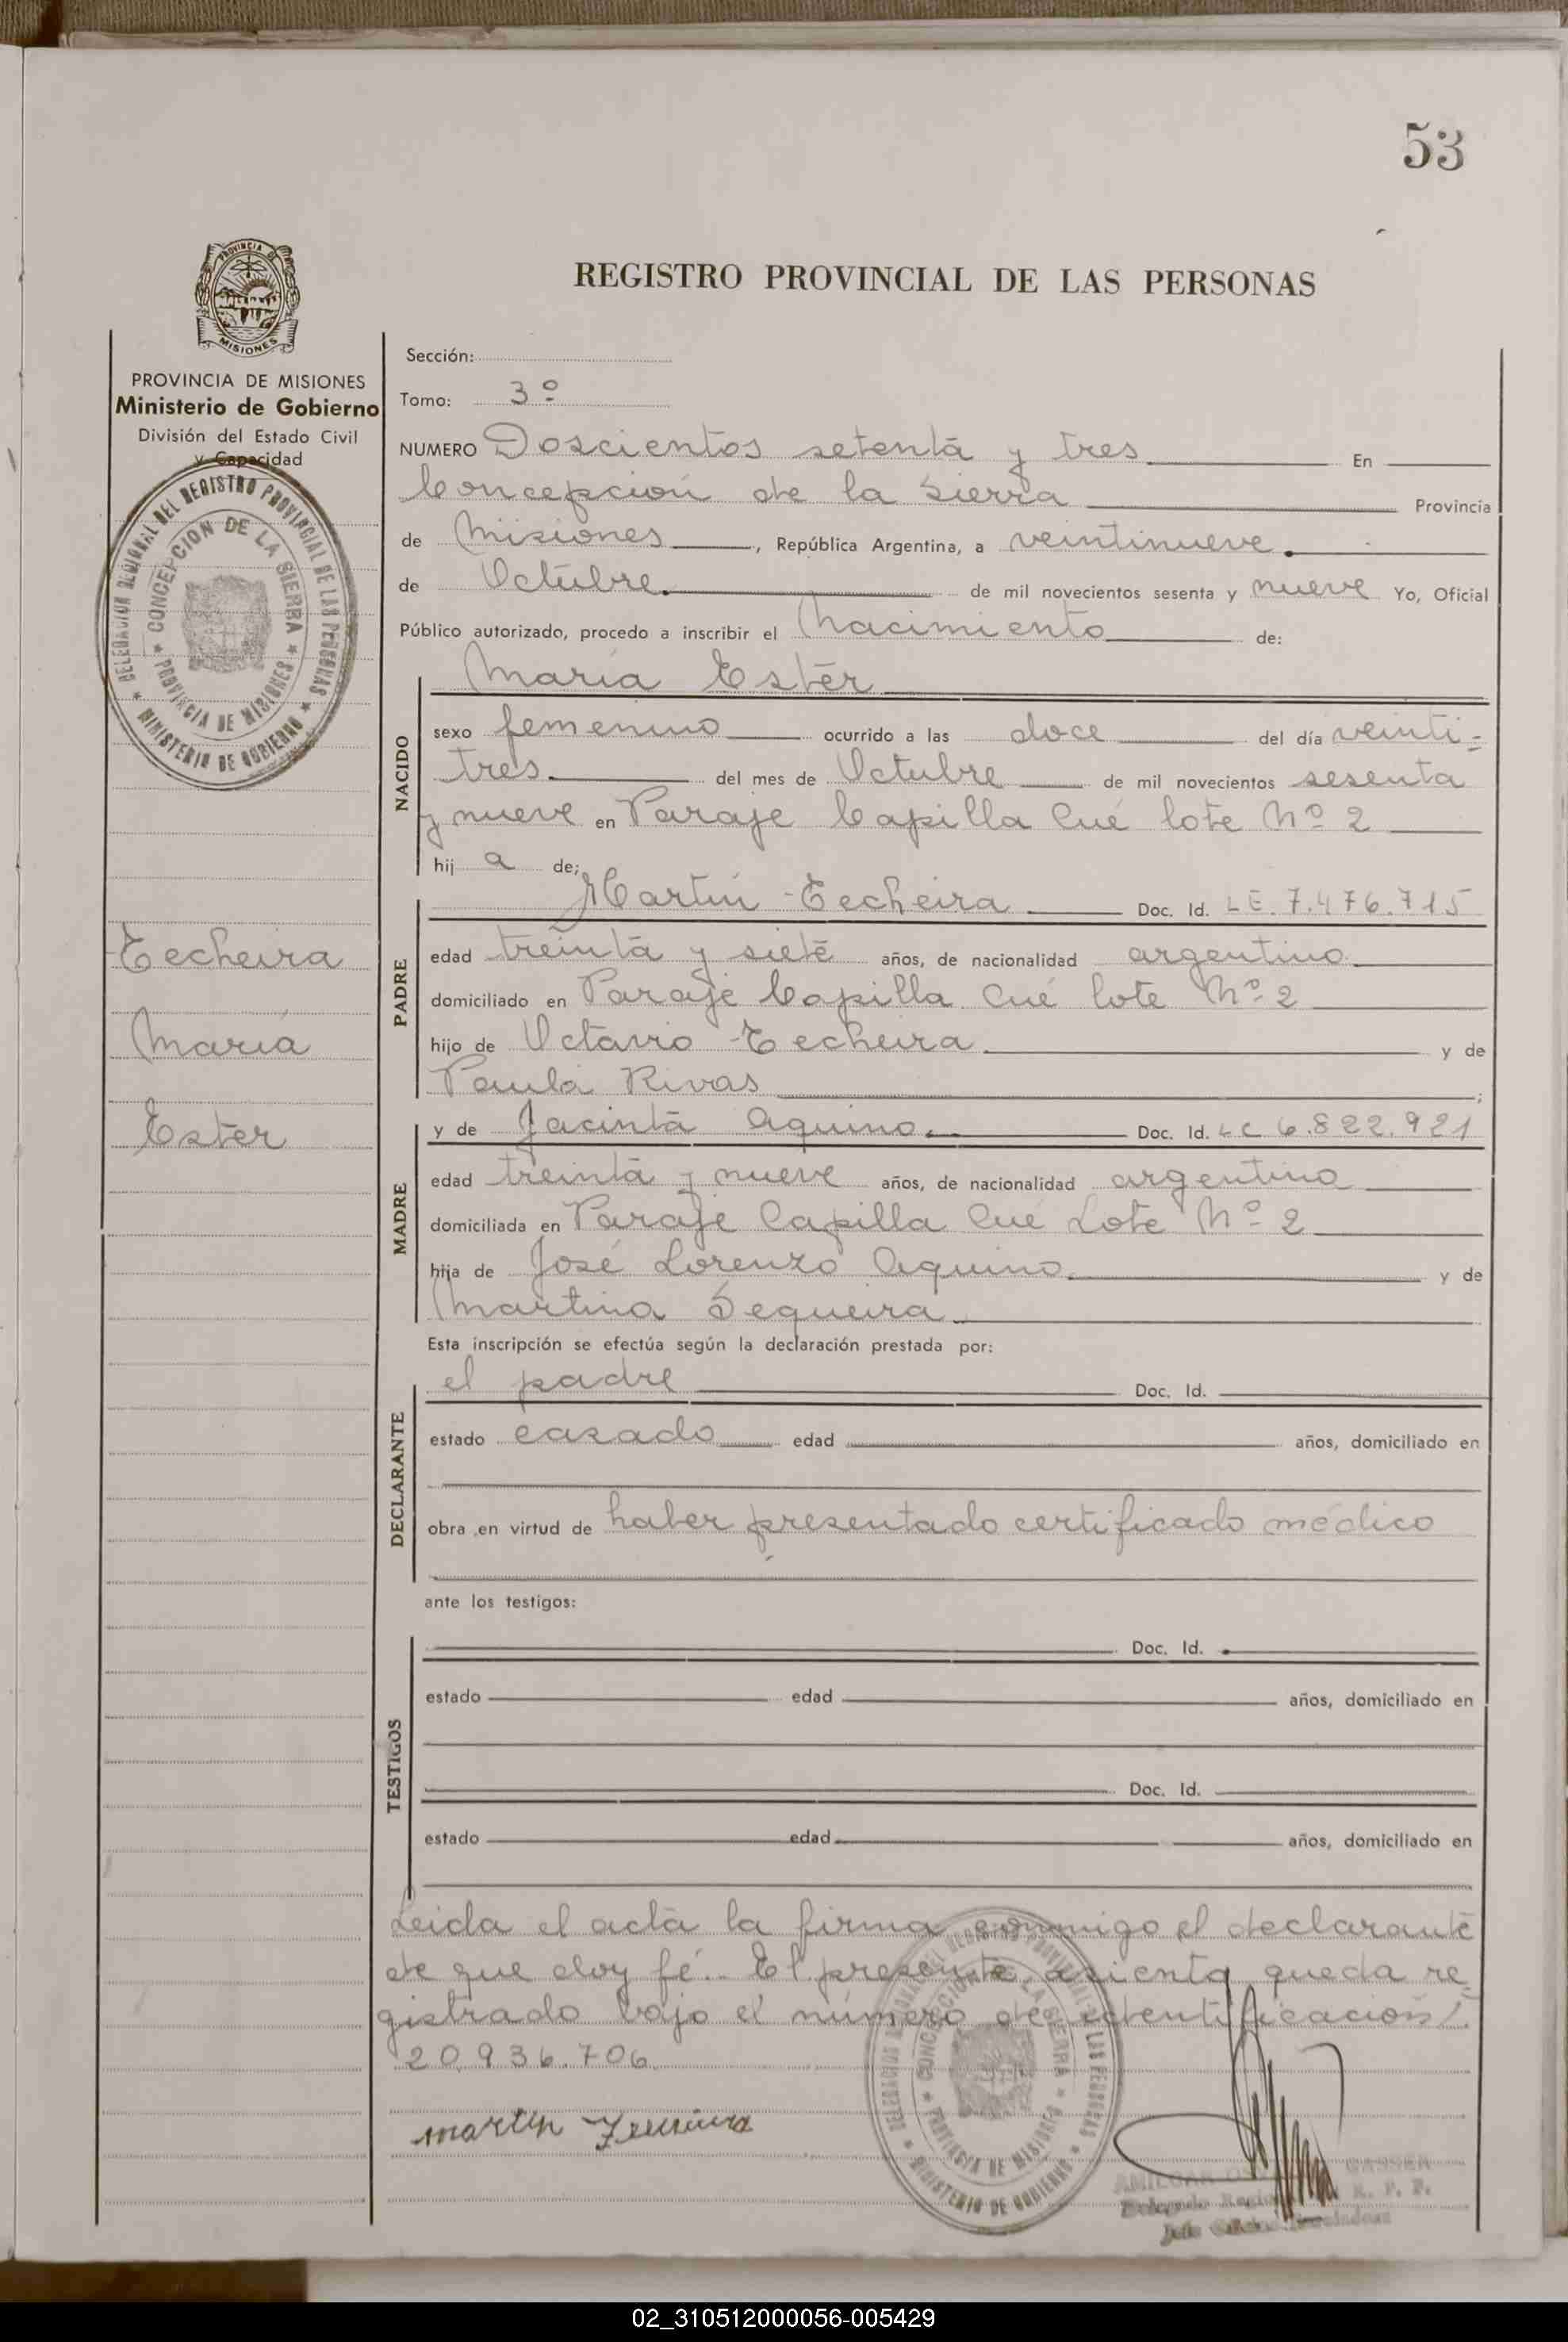 53
REGISTRO PROVINCIAL DE LAS PERSONAS
PROVINCIA DE
MISIONES
PROVINCIA DE MISIONES
Ministerio de Gobierno
División del Estado Civil
y Capacidad
DELEGACION REGIONAL DEL REGISTRO PROVINCIAL DE LAS PERSONAS
★ MINISTERIO DE GOBIERNO ★
CONCEPCION DE LA SIERRA
★ PROVINCIA DE MISIONES ★
Techeira
María
Ester
Sección:
Tomo: 3º
NUMERO Doscientos setenta y tres En
Concepción de la Sierra Provincia
de Misiones, República Argentina, a veintinueve.
de Octubre. de mil novecientos sesenta y nueve Yo, Oficial
Público autorizado, procedo a inscribir el Nacimiento de:
María Ester
NACIDO
sexo femenino ocurrido a las doce del día veinti-
tres. del mes de Octubre de mil novecientos sesenta
y nueve en Paraje Capilla Cué lote Nº 2
hij a de;
PADRE
Martín Techeira Doc. Id. LE. 7.476.715
edad treinta y siete años, de nacionalidad argentino.
domiciliado en Paraje Capilla Cué lote Nº 2
hijo de Octavio Techeira y de
Paula Rivas ;
MADRE
y de Jacinta Aquino. Doc. Id. LC 6.822.921
edad treinta y nueve años, de nacionalidad argentina
domiciliada en Paraje Capilla Cué Lote Nº 2
hija de José Lorenzo Aquino. y de
Martina Sequeira.
Esta inscripción se efectúa según la declaración prestada por:
DECLARANTE
el padre Doc. Id.
estado casado edad años, domiciliado en
obra en virtud de haber presentado certificado médico
ante los testigos:
TESTIGOS
Doc. Id.
estado edad años, domiciliado en
Doc. Id.
estado edad años, domiciliado en
Leida el acta la firma conmigo el declarante
de que doy fé. El presente asiento queda re
gistrado bajo el número de identificación
20.936.706.
martin
DELEGACION REGIONAL DEL REGISTRO PROVINCIAL DE LAS PERSONAS
★ MINISTERIO DE GOBIERNO ★
CONCEPCION DE LA SIERRA
★ PROVINCIA DE MISIONES ★
AMILCAR GASSER
Delegado R. P. P.
02_310512000056-005429